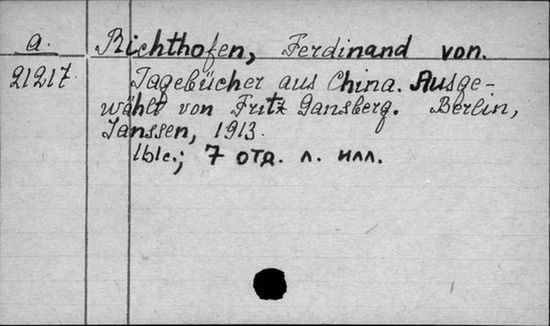 a. Richthofen, Ferdinand von.
21217. Tagebücher aus China. Ausge-
wählt von Fritz Gansberg. Berlin,
Janssen, 1913.
7 отд. л. илл.